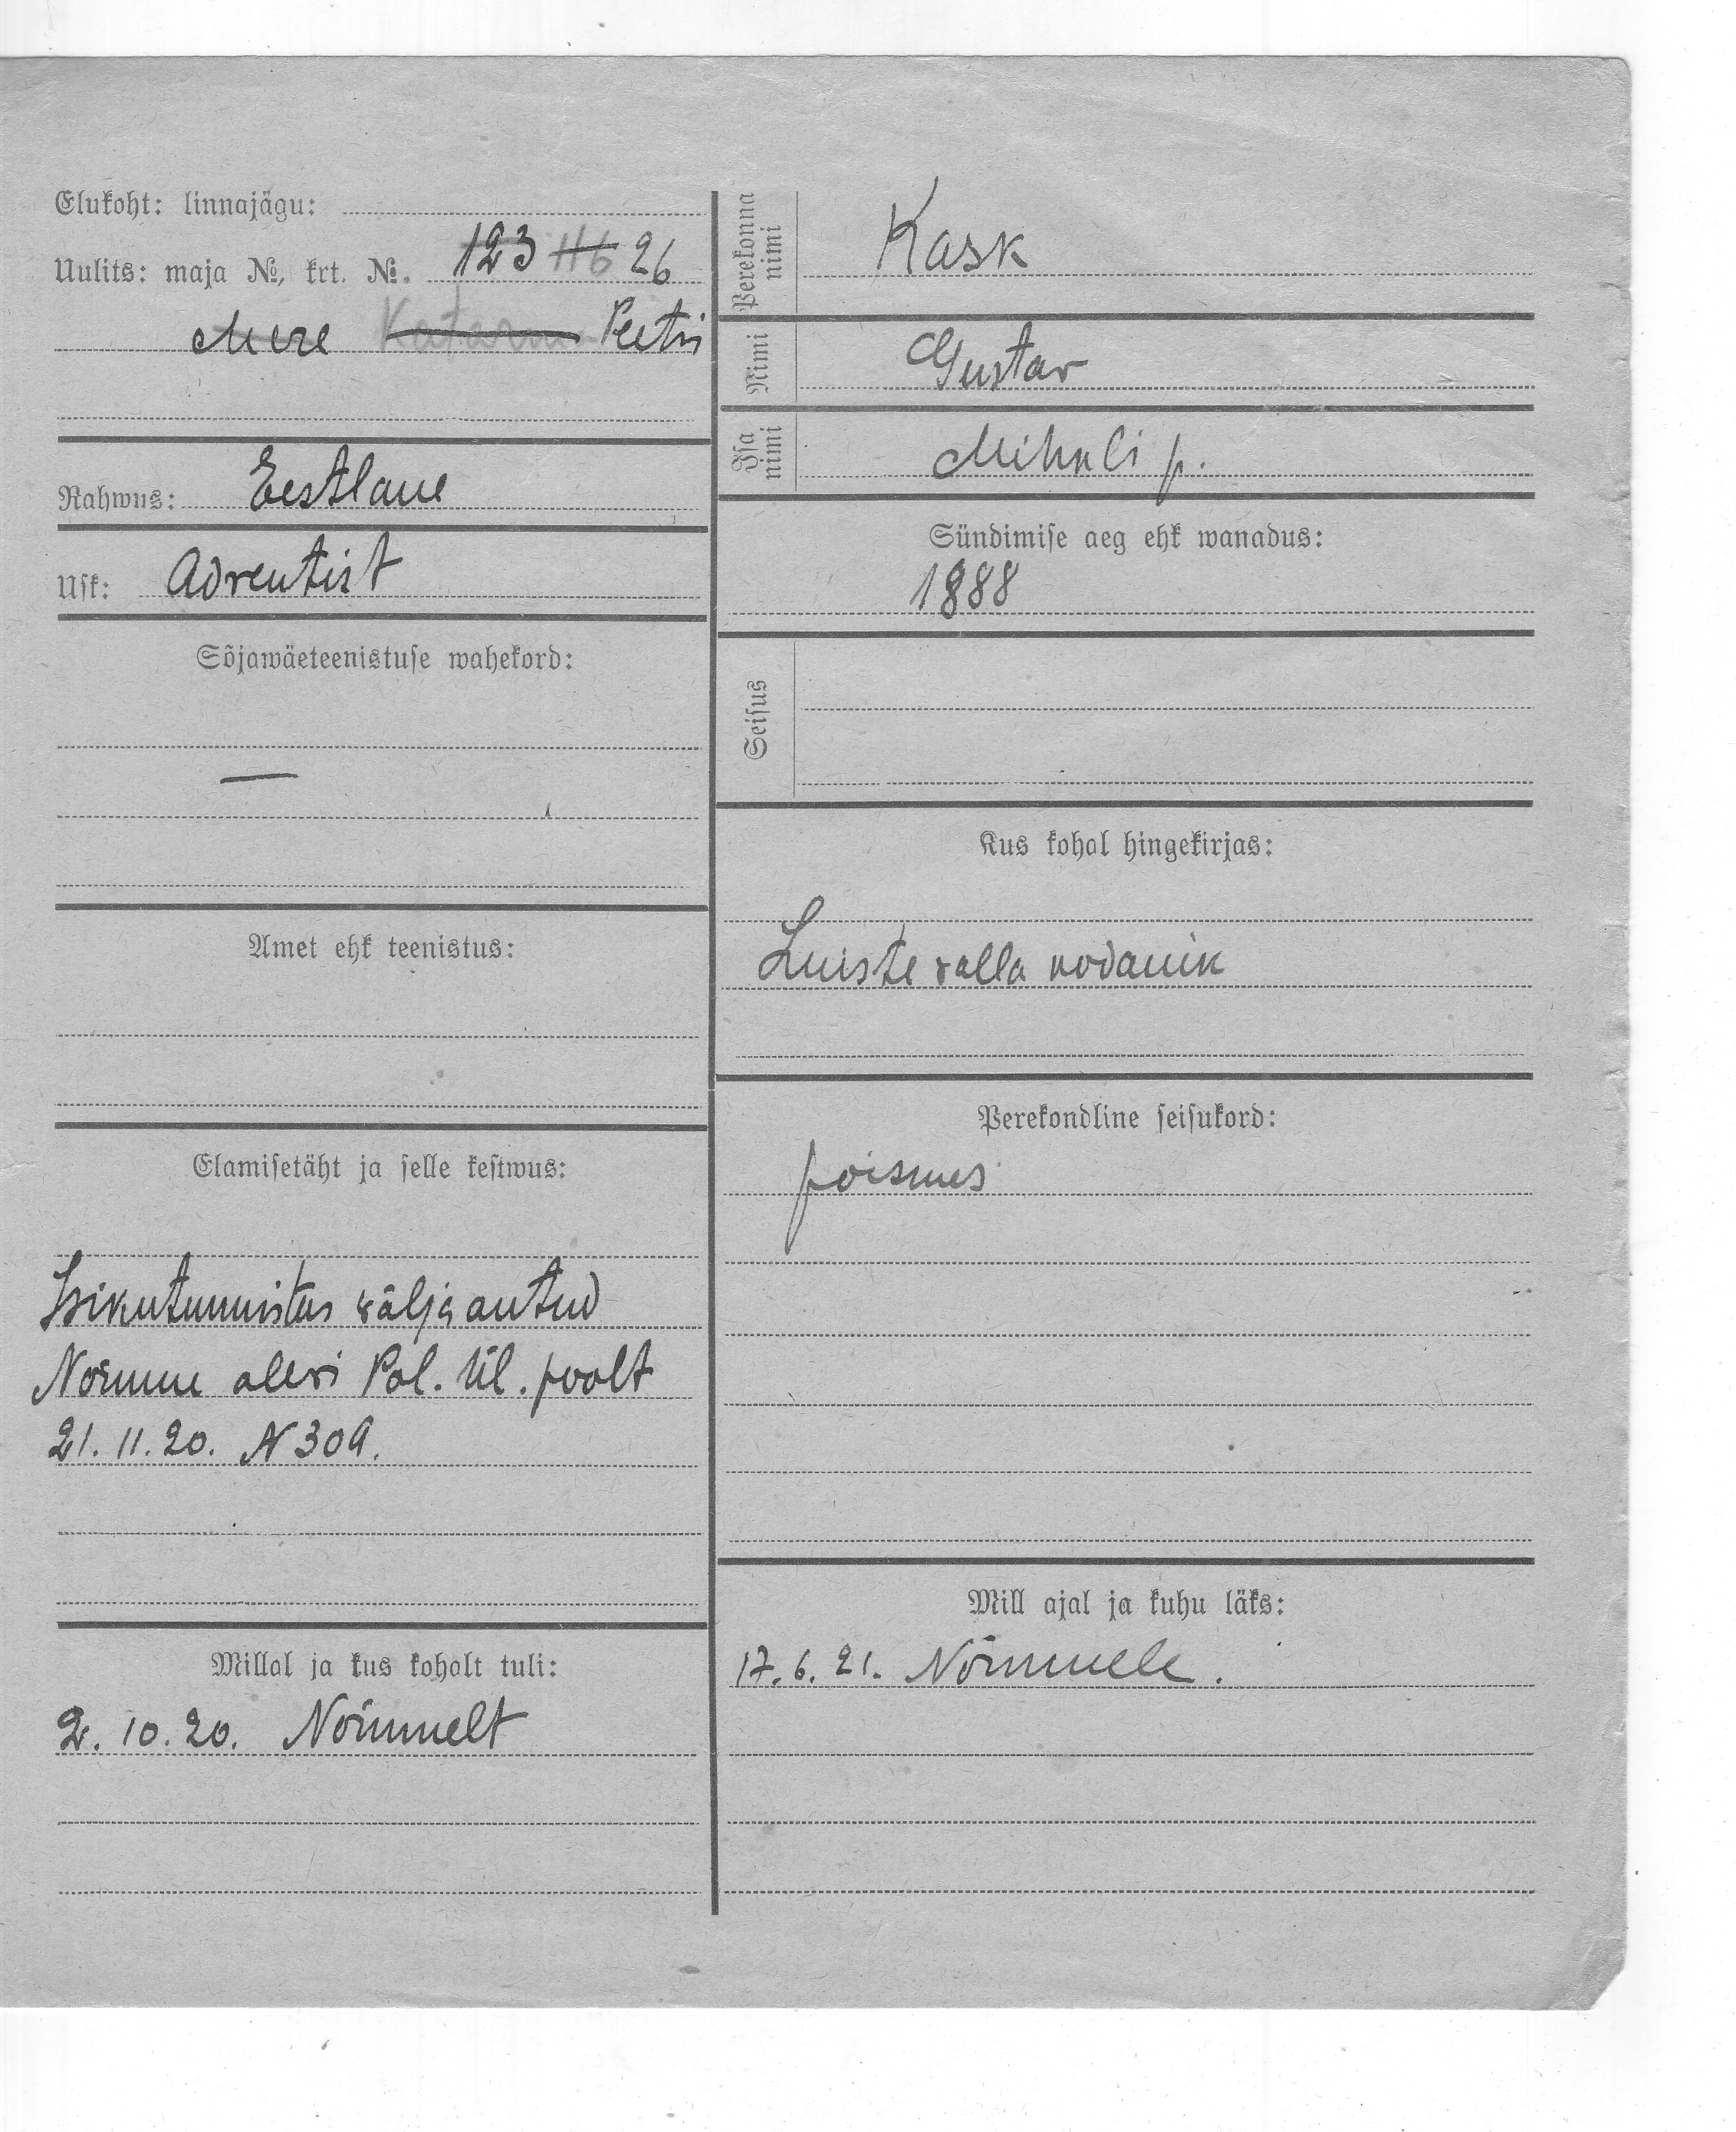 Elukoht: linnajägu:
Uulits: maja №, krt. №. 123 116 26
Mere Peetri
Rahwus: Eestlane
Usk: Adventist
Sõjawäeteenistuse wahekord:
—
Amet ehk teenistus:
Elamisetäht ja selle kestwus:
Isikutunnistus välja antud
Nõmme alevi Pol. Ül. poolt
21.11.20. N 309.
Millal ja kus kohalt tuli:
2.10.20. Nõmmelt
Perekonna nimi Kask
Nimi Gustav
Isa nimi Mihkli p.
Sündimise aeg ehk wanadus:
1888
Seisus
Kus kohal hingekirjas:
Luiste valla kodanik
Perekondline seisukord:
poismes
Mill ajal ja kuhu läks:
17.6.21. Nõmmele.